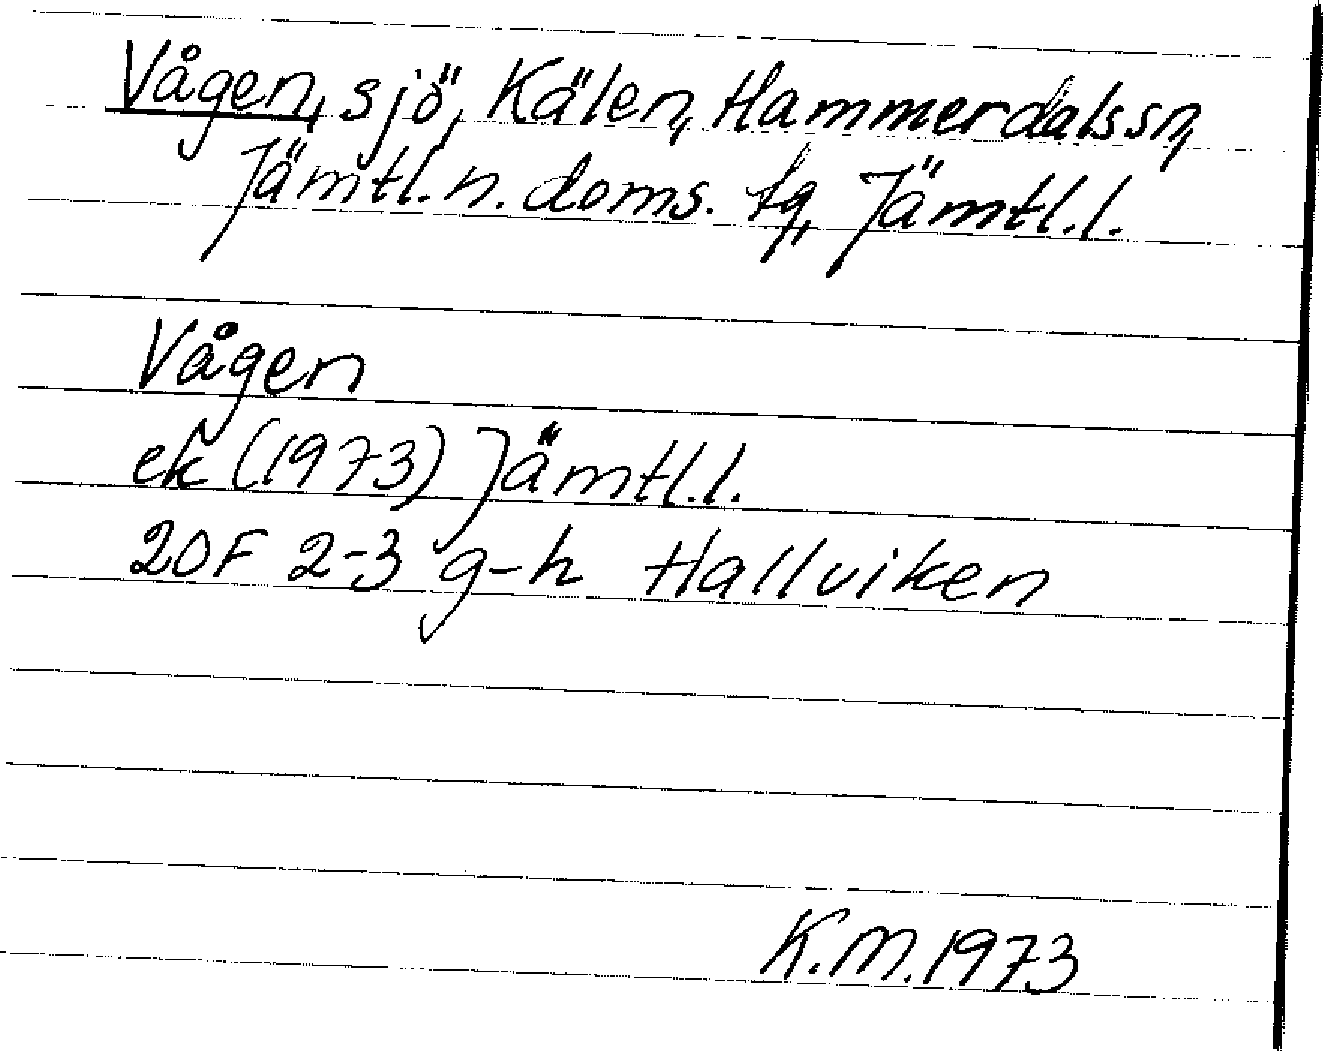 Vågen, sjö, Kälen, Hammerdals sn,
Jämtl. n. doms. tg, Jämtl. l.
Vågen
ek (1973) Jämtl. l.
20F 2-3 g-h Hallviken
K.M. 1973